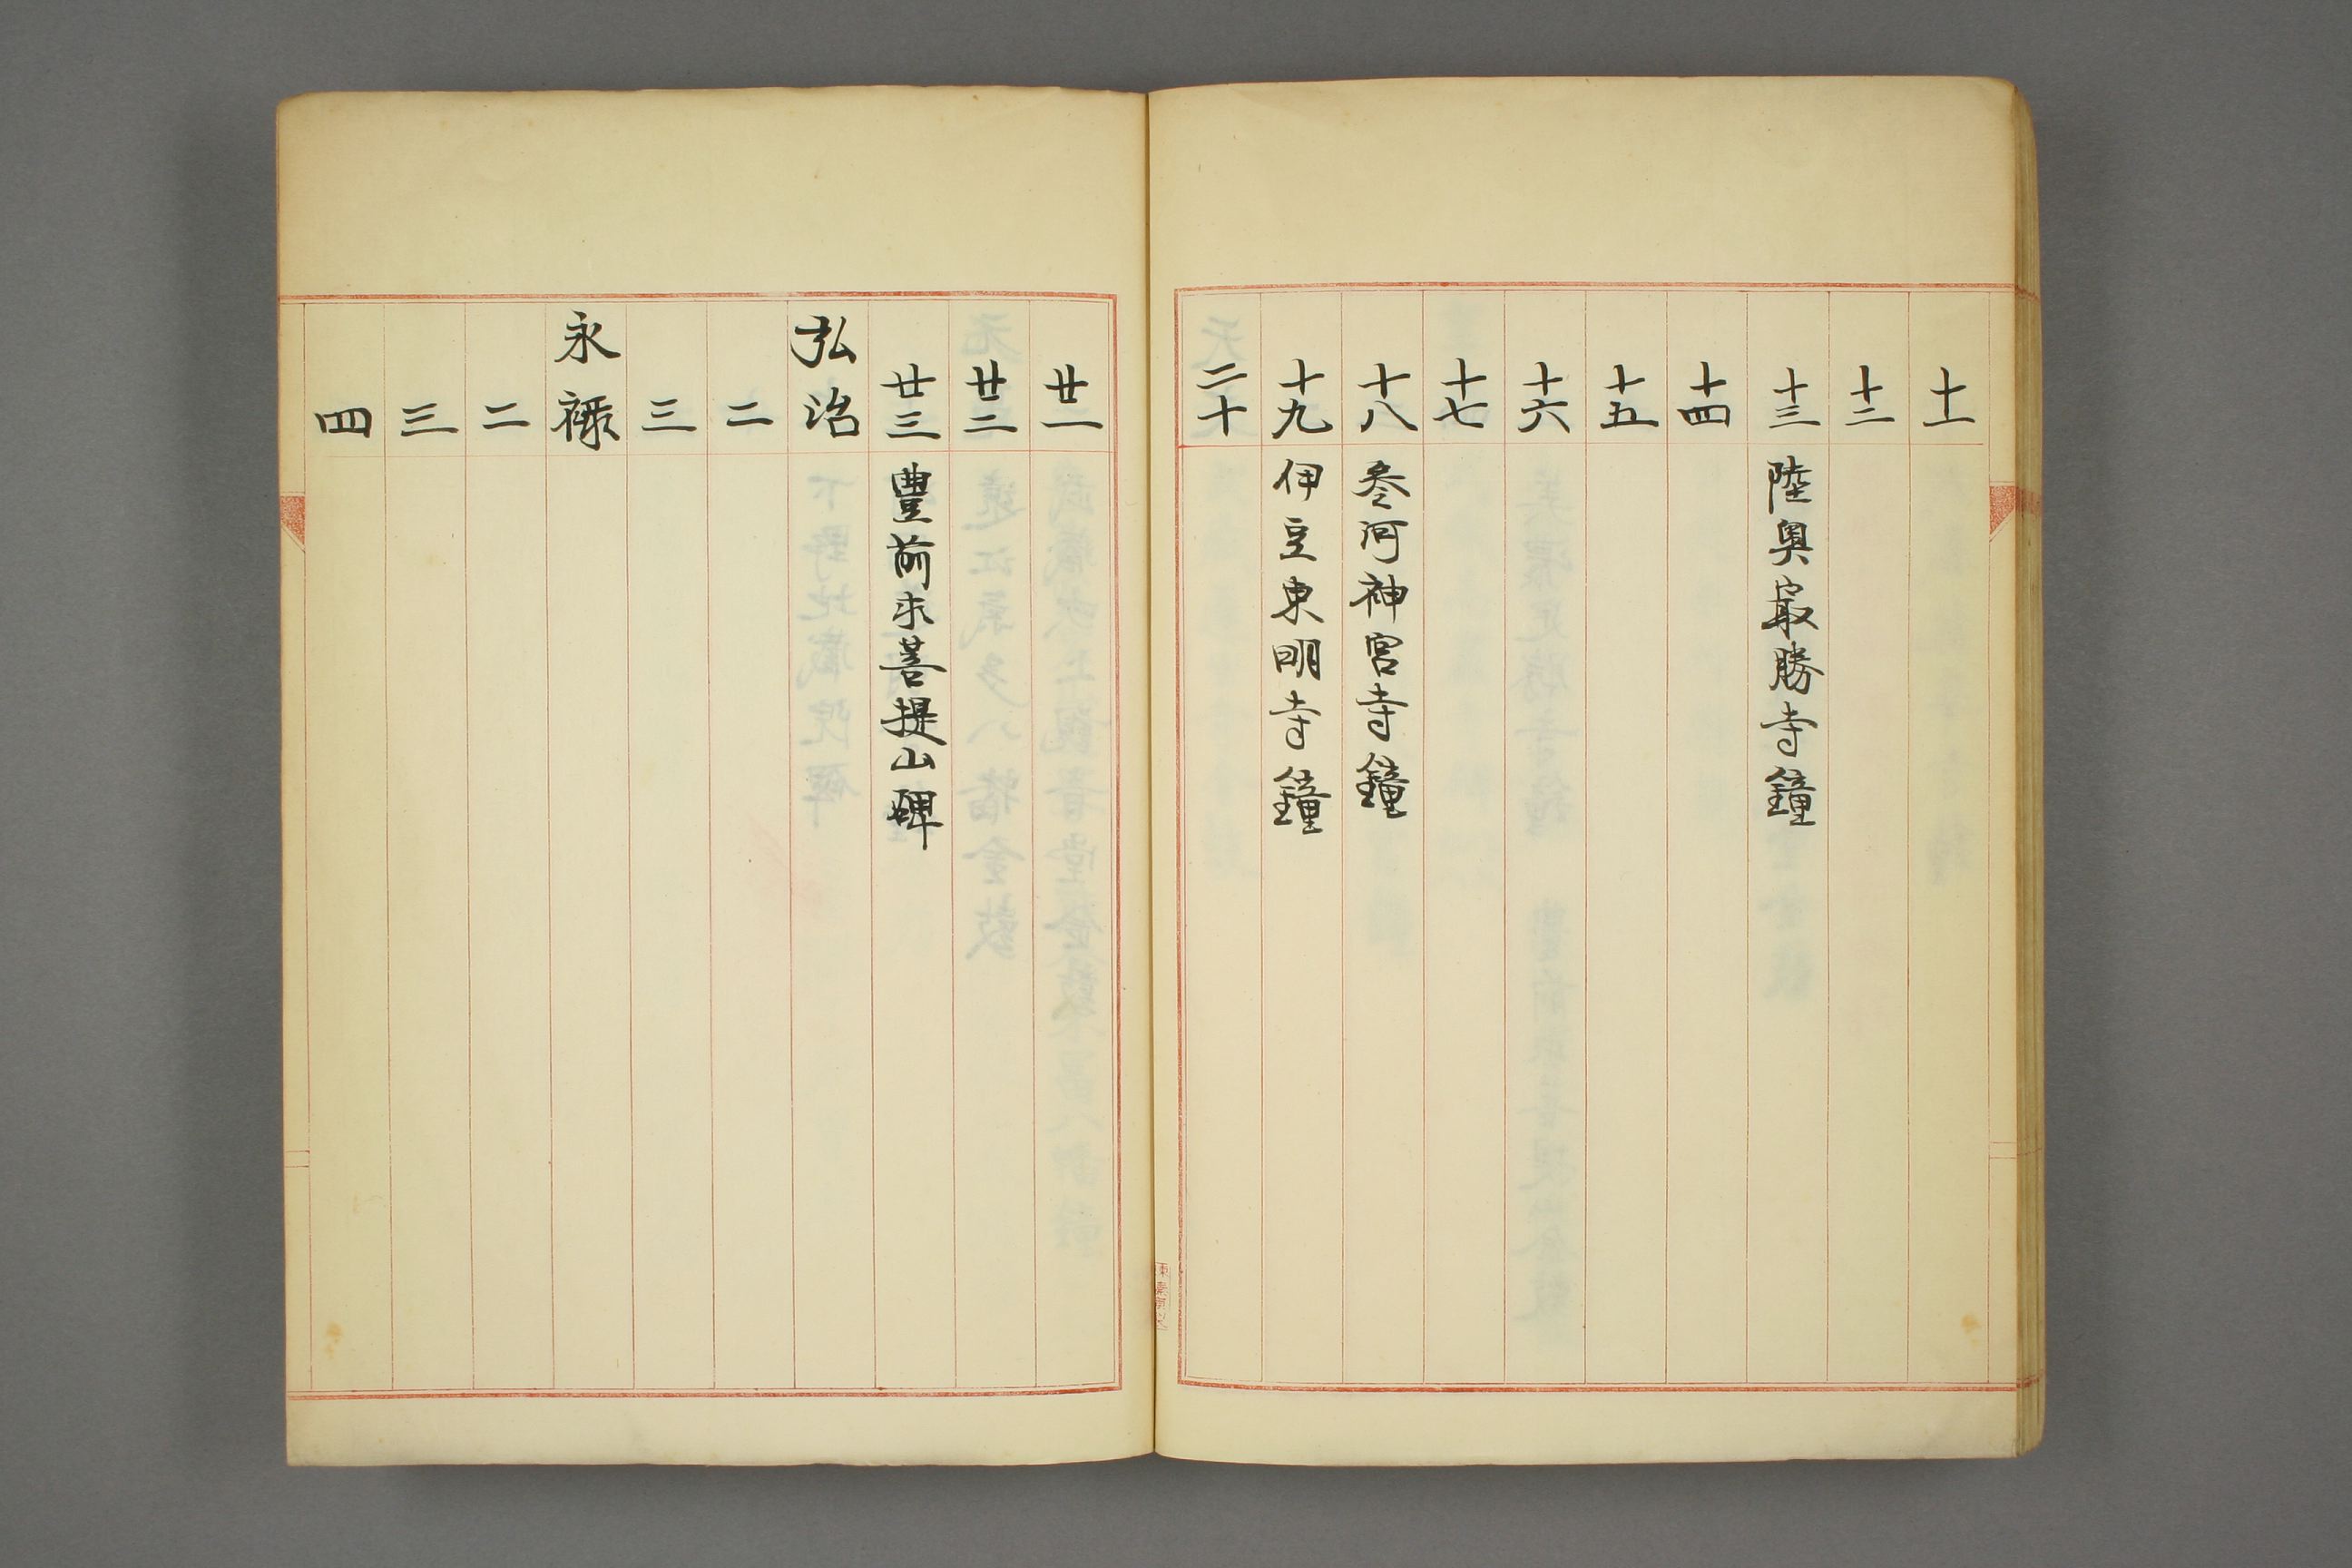 十一
十二
十三 陸奥冣勝寺鐘
十四
十五
十六
十七
十八 叄河神宮寺鐘
十九 伊豆東明寺鐘
二十
廿一
廿二
廿三 豊前求菩提山碑
弘治
二
三
永禄
二
三
四